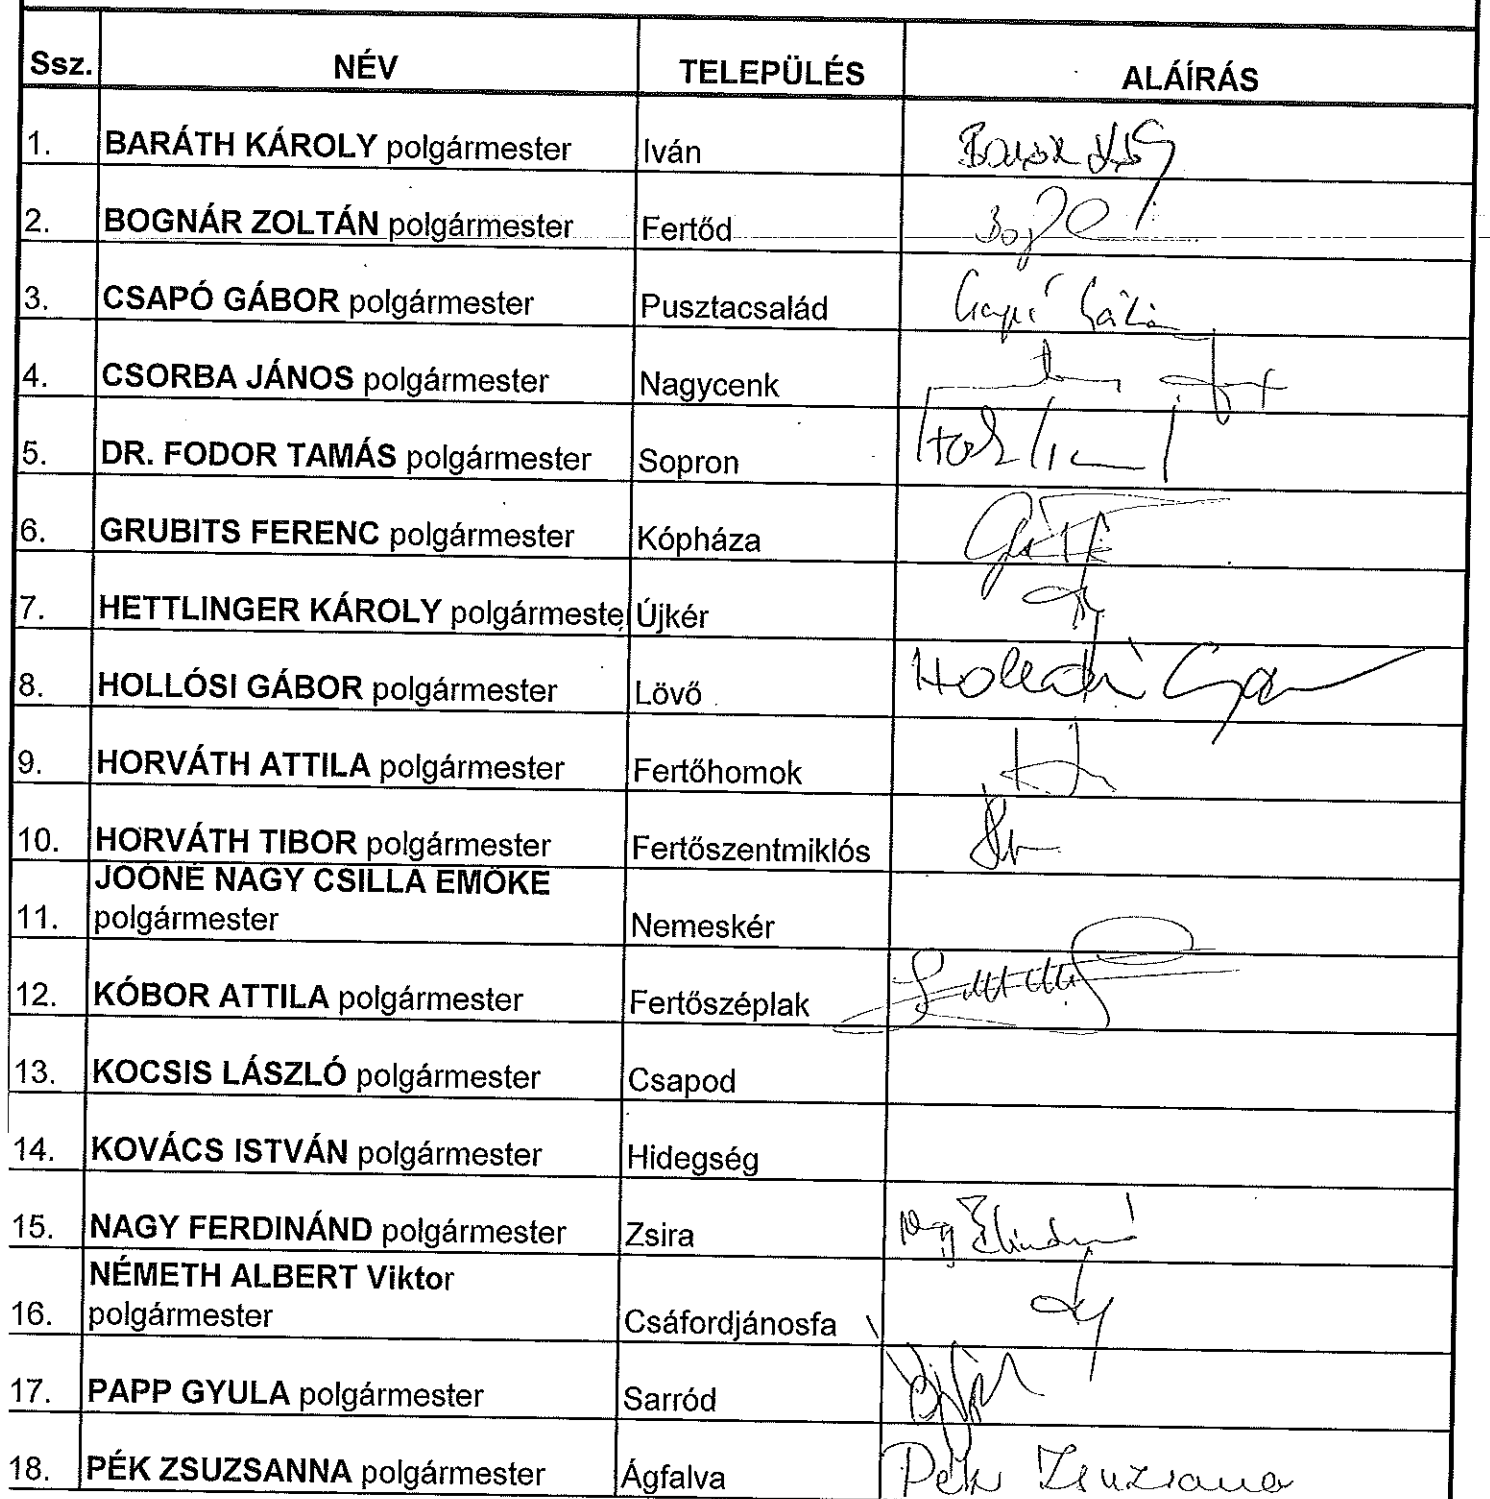 Ssz. NÉV TELEPÜLÉS ALÁÍRÁS
1. BARÁTH KÁROLY polgármester Iván
2. BOGNÁR ZOLTÁN polgármester Fertőd
3. CSAPÓ GÁBOR polgármester Pusztacsalád
4. CSORBA JÁNOS polgármester Nagycenk
5. DR. FODOR TAMÁS polgármester Sopron
6. GRUBITS FERENC polgármester Kópháza
7. HETTLINGER KÁROLY polgármeste Újkér
8. HOLLÓSI GÁBOR polgármester Lövő
9. HORVÁTH ATTILA polgármester Fertőhomok
10. HORVÁTH TIBOR polgármester Fertőszentmiklós
JOÓNÉ NAGY CSILLA EMŐKE
11. polgármester Nemeskér
12. KÓBOR ATTILA polgármester Fertőszéplak
13. KOCSIS LÁSZLÓ polgármester Csapod
14. KOVÁCS ISTVÁN polgármester Hidegség
15. NAGY FERDINÁND polgármester Zsira
NÉMETH ALBERT Viktor
16. polgármester Csáfordjánosfa
17. PAPP GYULA polgármester Sarród
18. PÉK ZSUZSANNA polgármester Ágfalva Pék Zsuzsana